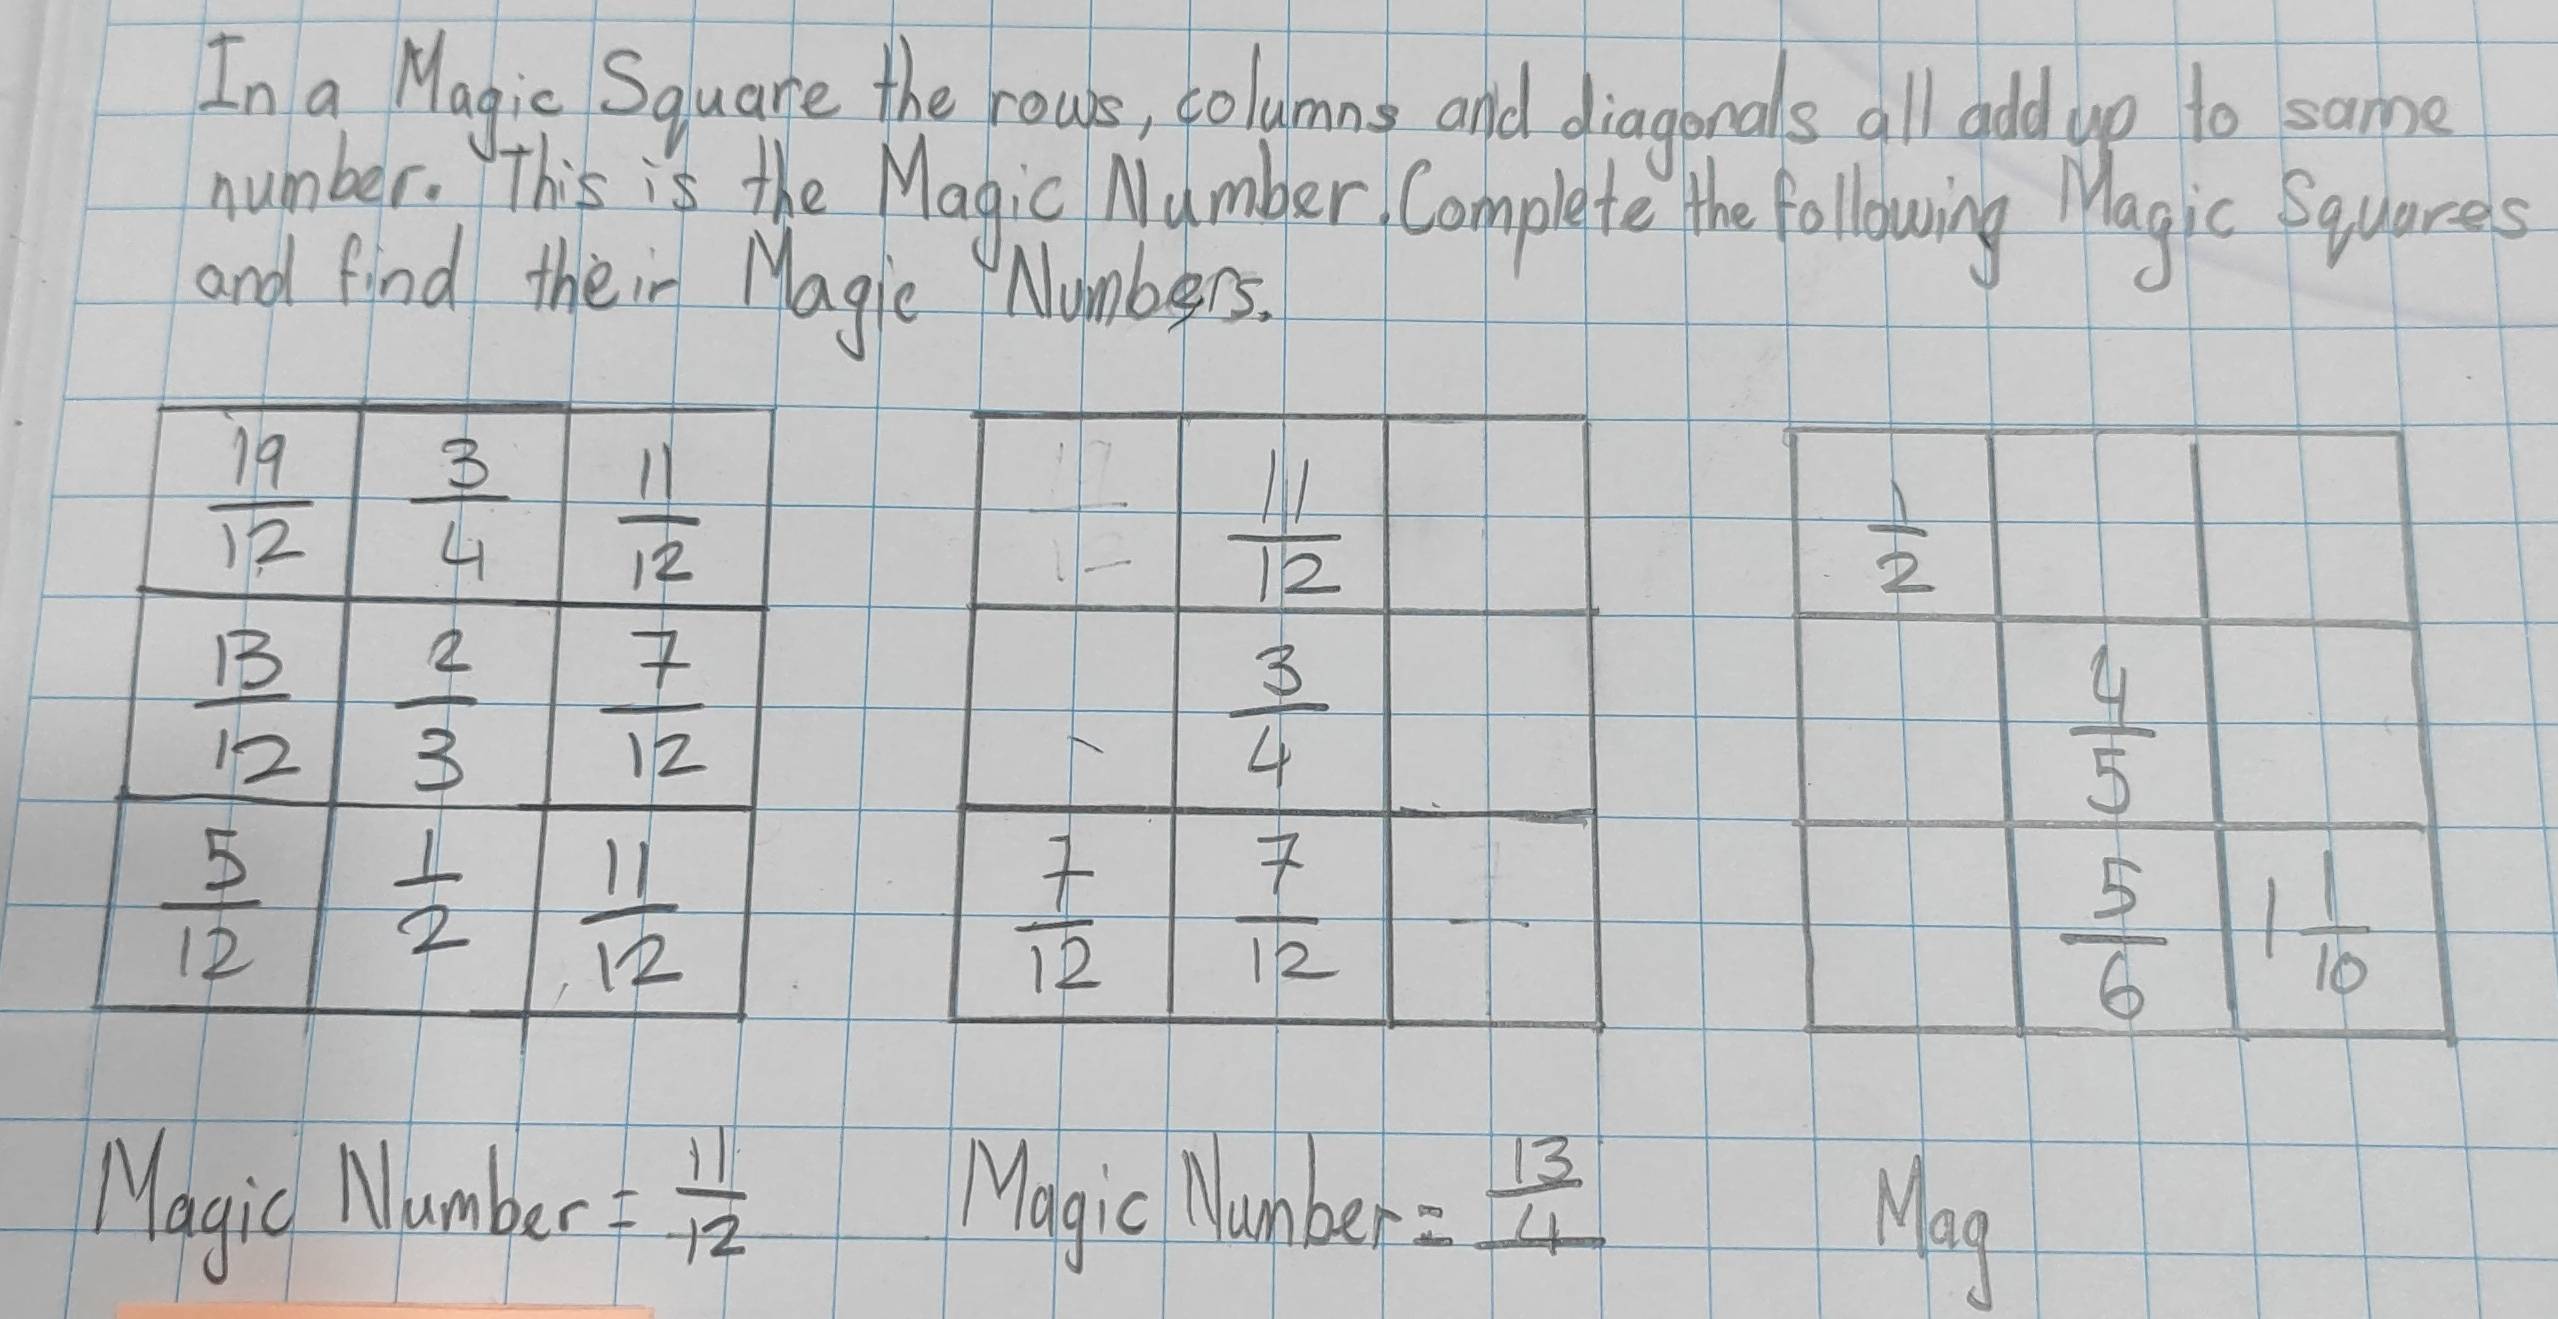 In a Magic Square the rows, columns and diagonals all add up to same
number. This is the Magic Number. Complete the following Magic Squares
and find their Magic Numbers.
19/12 3/4 11/12
13/12 2/3 7/12
5/12 1/2 11/12
11/12
3/4
7/12 7/12
1/2
4/5
5/6 1 1/10
Magic Number = 11/12
Magic Number = 13/4
Mag